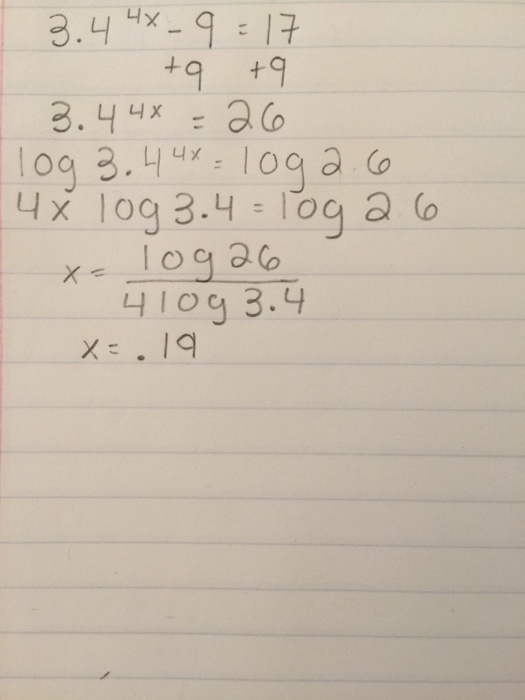 3.4^4x - 9 = 17
+9 +9
3.4^4x = 26
log 3.4^4x = log 26
4x log 3.4 = log 26
x = log 26 / 4 log 3.4
x = .19